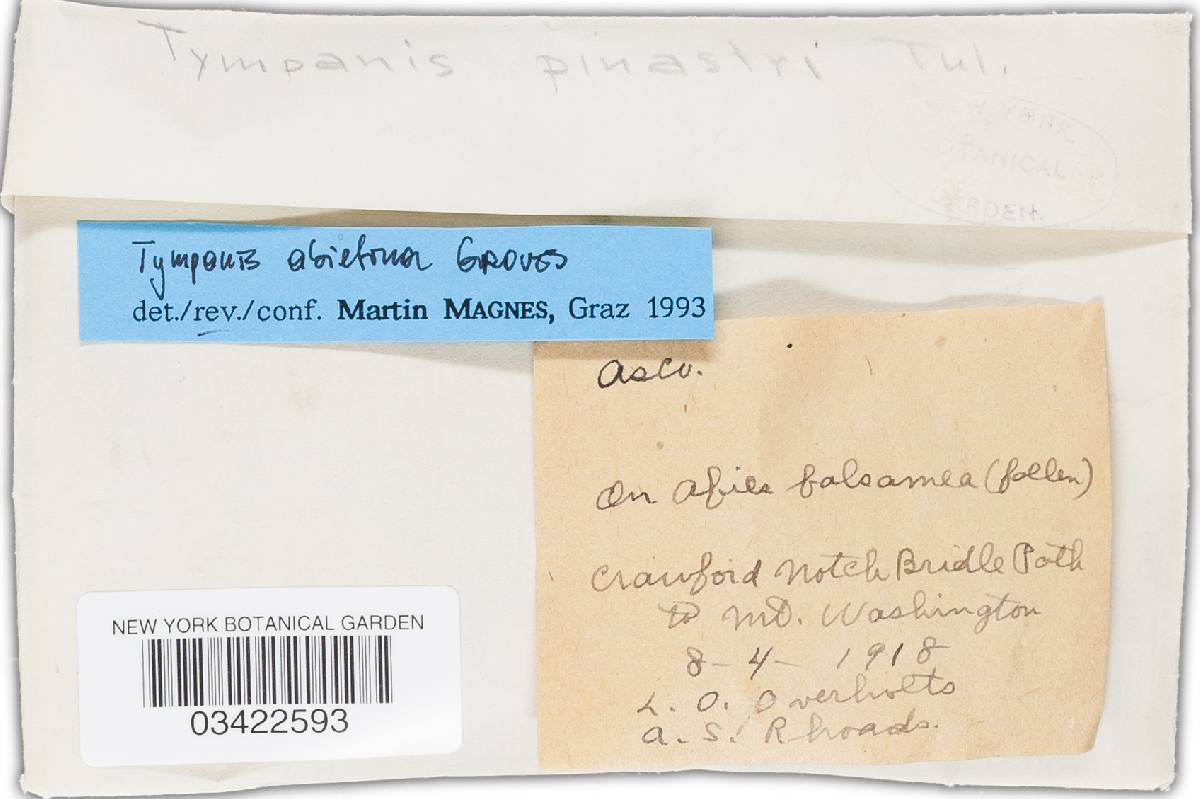 Tympanis pinastri Tul.
W YORK
BOTANICAL
GARDEN.
Tympanis abietina GROVES
det./rev./conf. Martin MAGNES, Graz 1993
Asco.
On Abies balsamea (fallen)
Crawford Notch Bridle Path
to Mt. Washington
8-4-1918
L. O. Overholts
A. S. Rhoads.
NEW YORK BOTANICAL GARDEN
03422593